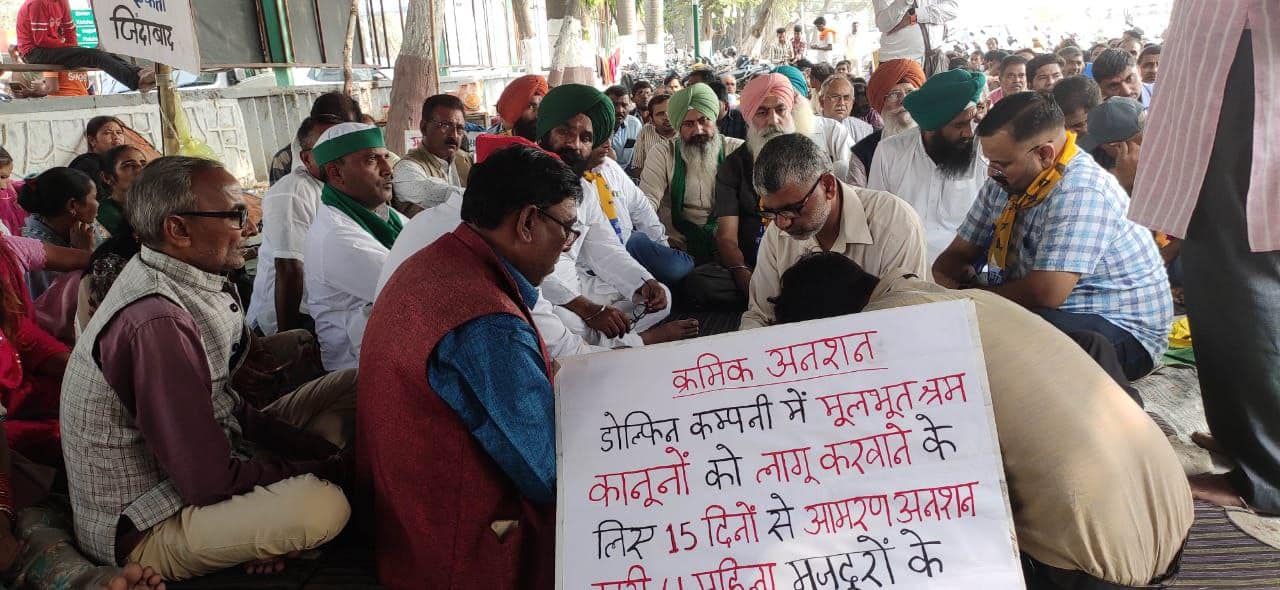 जिंदाबाद
क्रमिक अनशन
डोल्फिन कम्पनी में मूलभूत श्रम
कानूनों को लागू करवाने के
लिए 15 दिनों से आमरण अनशन
महिला मजदूरों के